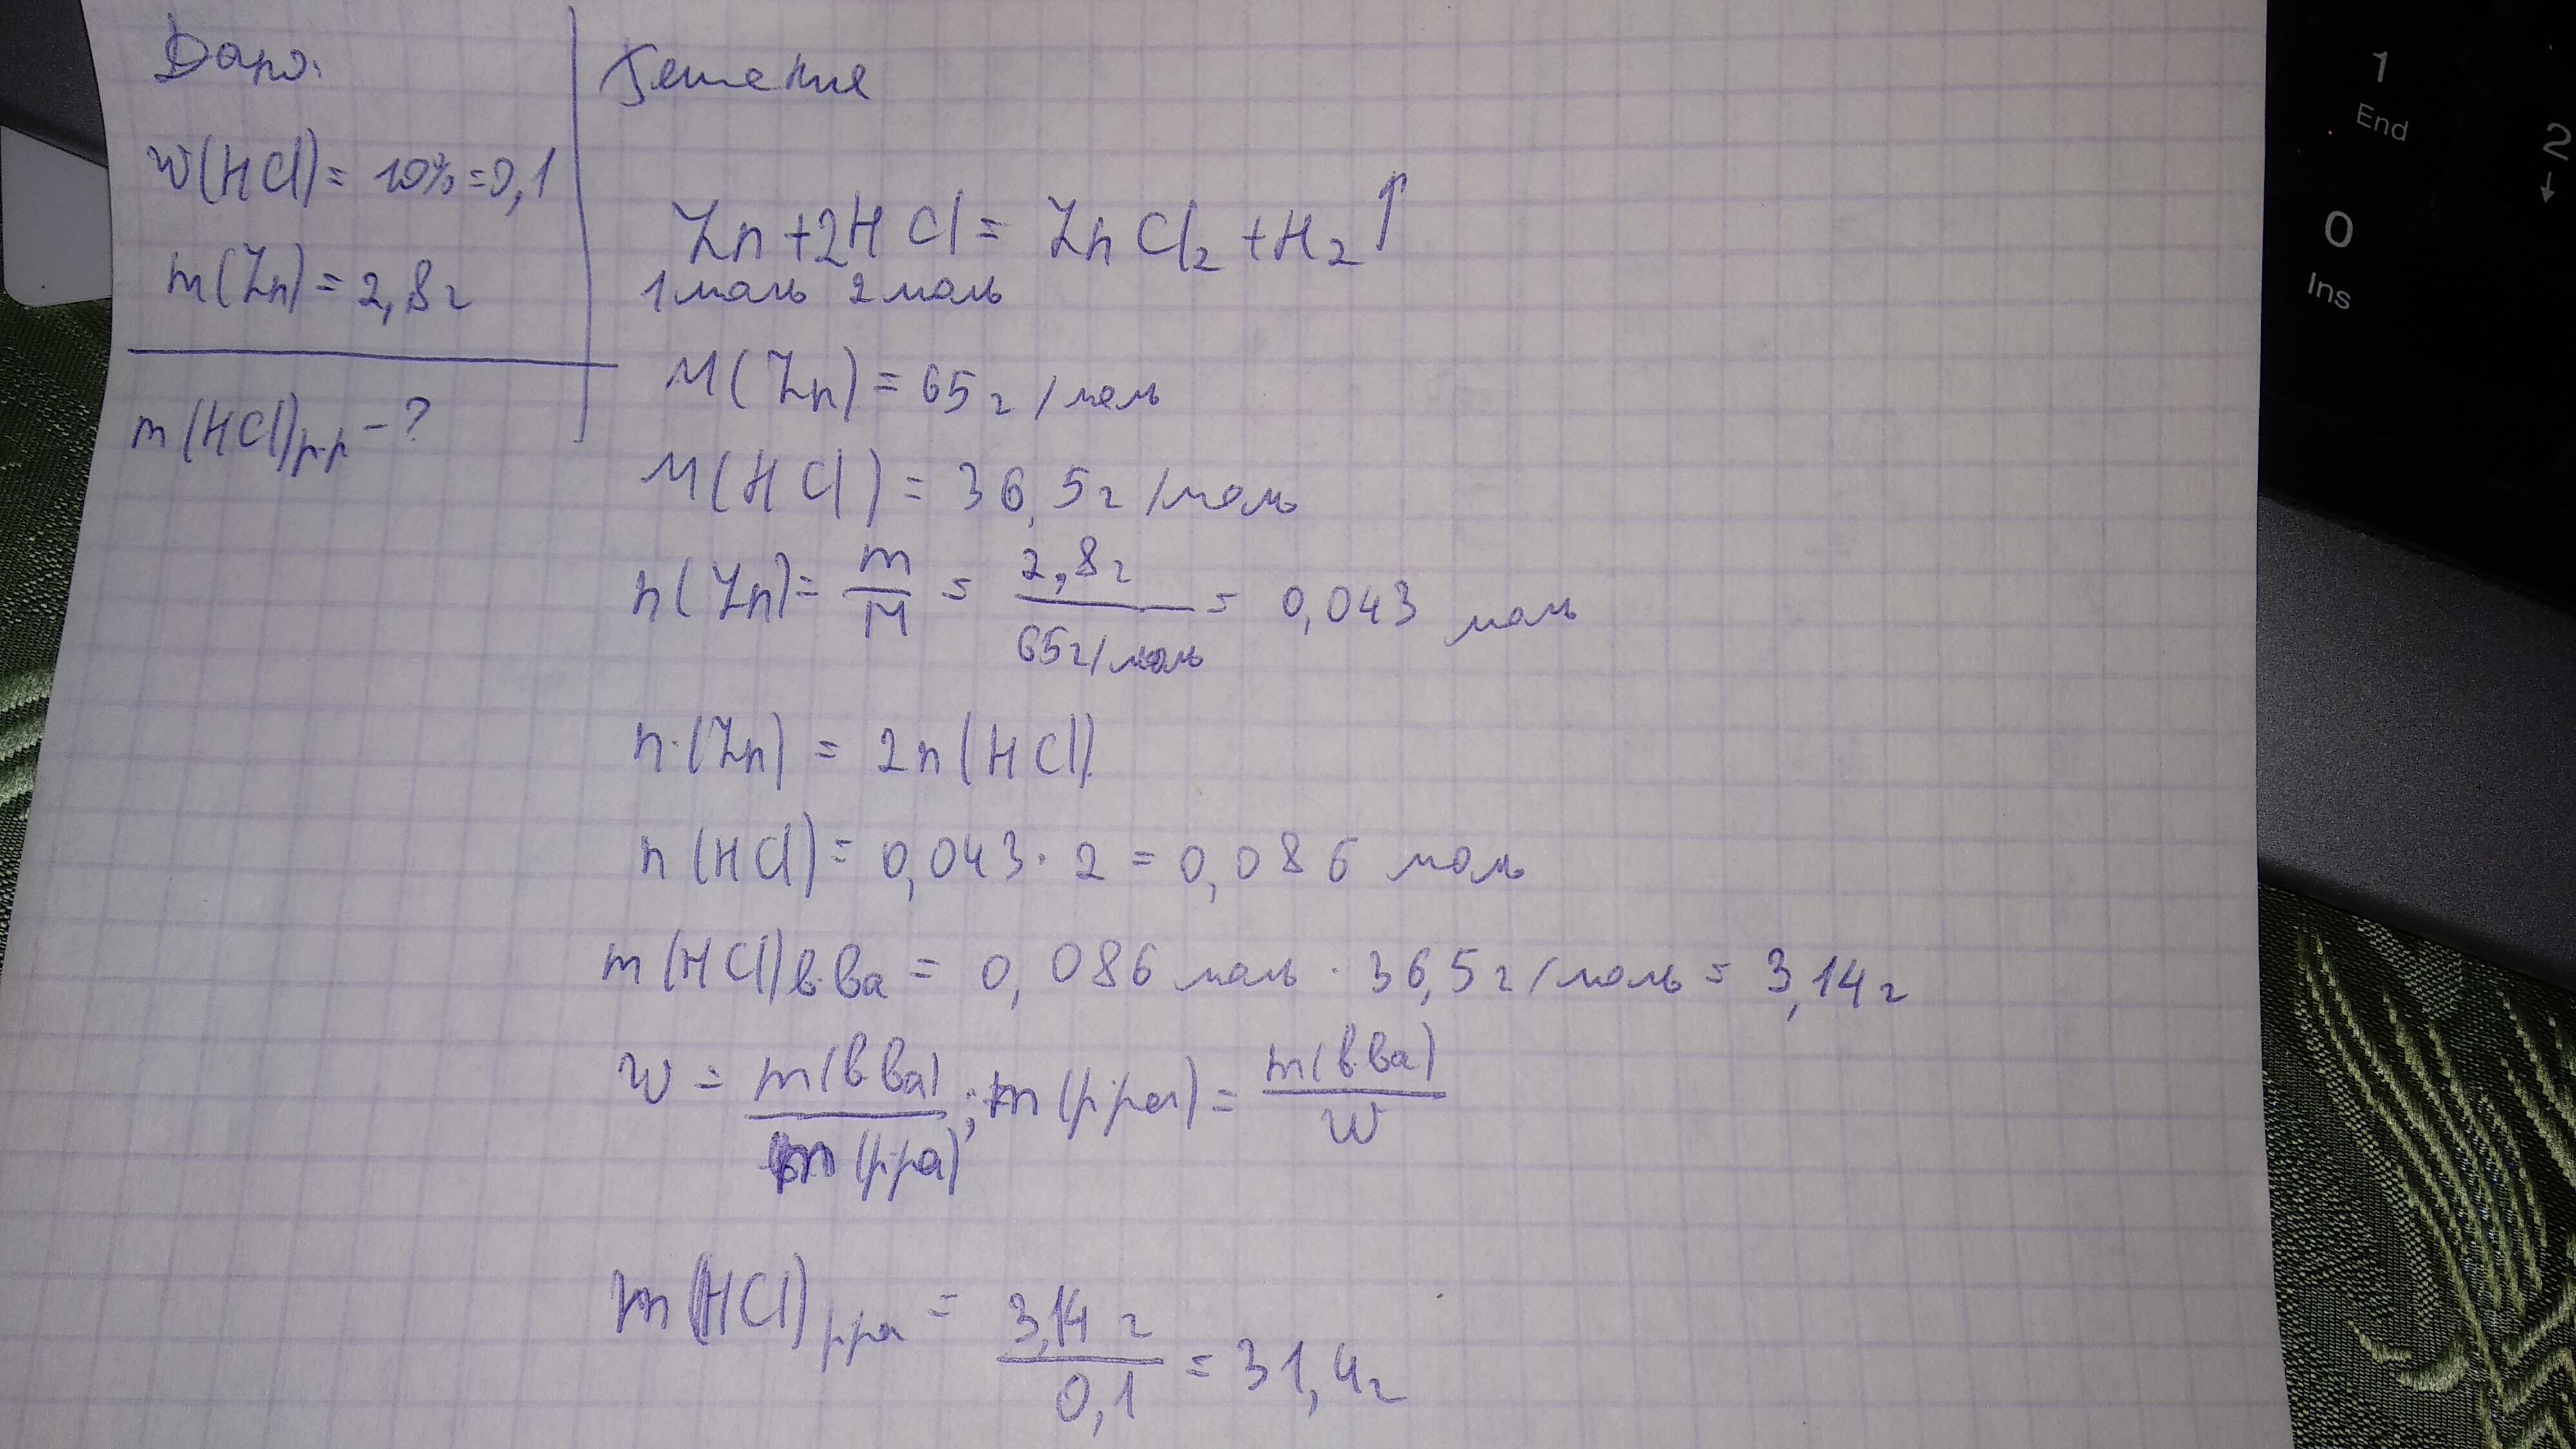 Дано:
W(HCl) = 10% = 0,1
m(Zn) = 2,8г
m(HCl)р-р - ?
Решение
Zn + 2HCl = ZnCl₂ + H₂↑
1моль 2моль
M(Zn) = 65г/моль
M(HCl) = 36,5г/моль
n(Zn) = m/M = 2,8г/65г/моль = 0,043 моль
n(Zn) = 2n(HCl)
n(HCl) = 0,043 · 2 = 0,086 моль
m(HCl)в-ва = 0,086 моль · 36,5г/моль = 3,14г
W = m(в-ва)/m(р-ра); m(р-ра) = m(в-ва)/W
m(HCl)р-ра = 3,14 г/0,1 = 31,4г
1
End
2
↓
0
Ins